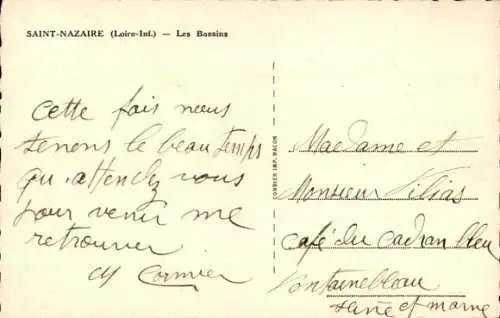 SAINT-NAZAIRE (Loire-Inf.) — Les Bassins
Cette fois nous
tenons le beau temps
qu'attendez vous
pour venir me
retrouver
Cormier
COMBIER IMP. MACON
Madame et
Monsieur Filias
café du cadran bleu
Fontainebleau
seine et marne